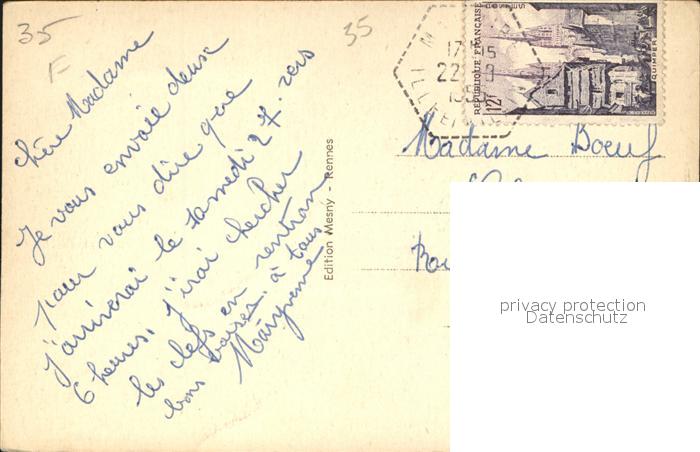 35
F
35
Chère Madame
Je vous envoie deux
pour vous dire que
j'arriverai le samedi 27. vers
6 heures, j'irai chercher
les clefs en rentran
bons baisers à tous
Maryvonne
Edition Mesny - Rennes
RÉPUBLIQUE FRANÇAISE
12F
QUIMPER
Madame Boeuf
privacy protection
Datenschutz